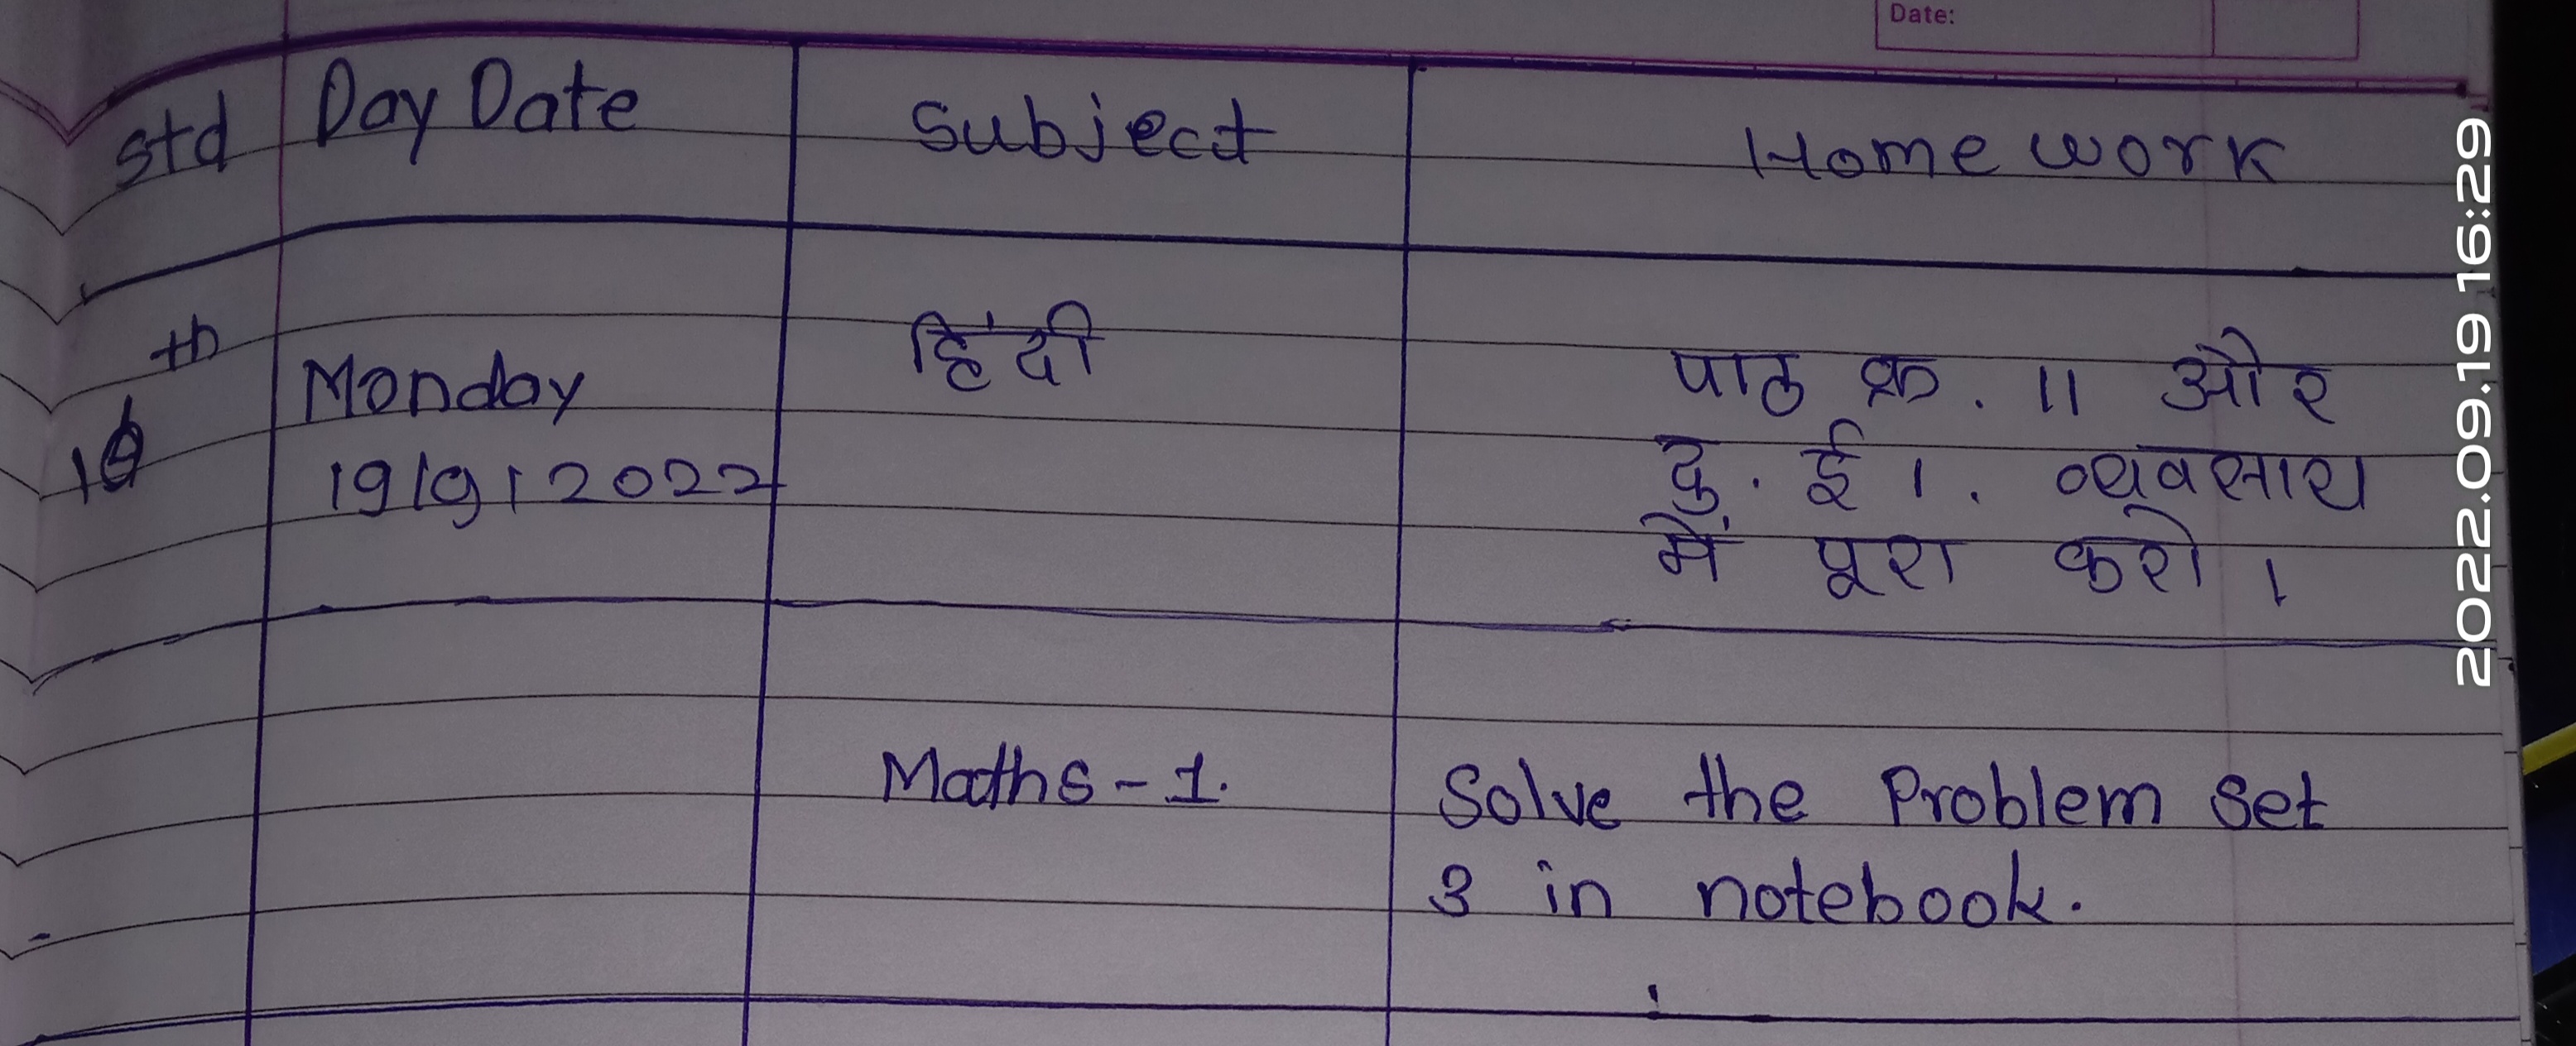 Date:
std Day Date Subject Home work
10th Monday हिंदी पाठ क्र. 11 और
19/9/2022 दु. ई 1. व्यवसाय
में पूरा करो।
Maths - 1. Solve the Problem set
3 in notebook.
2022.09.19 16:29